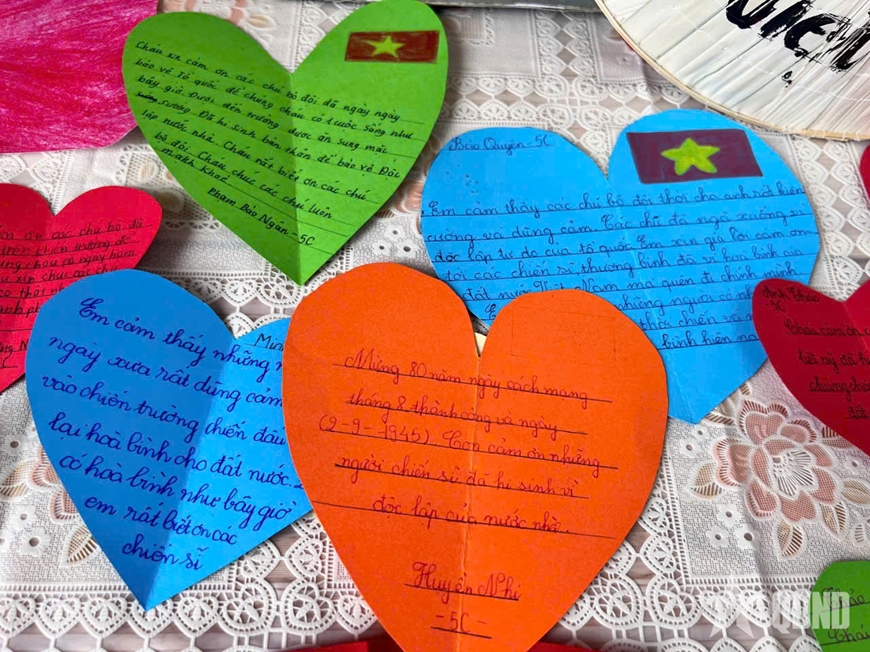 Cháu xin cảm ơn các chú bộ đội đã ngày ngày
bảo vệ Tổ quốc để chúng cháu có cuộc sống như
bây giờ. Được đến trường, được ăn sung mặc
sướng. Đã hi sinh bản thân để bảo vệ Độc
lập nước nhà. Cháu rất biết ơn các chú
bộ đội. Cháu chúc các chú luôn
mạnh khoẻ
Phạm Bảo Ngân - 5C
Bảo Quyên - 5C
Em cảm thấy các chú bộ đội thời cho anh rất kiên
cường và dũng cảm. Các chú đã ngã xuống vì
độc lập tự do của tổ quốc. Em xin gửi lời cảm ơn
tới các chiến sĩ, thương binh đã vì hoà bình của
đất nước Việt Nam mà quên đi chính mình
những người có
thời chiến và
bình hiện na
Em cảm thấy những
ngày xưa rất dũng cảm
vào chiến trường chiến đấu
lại hoà bình cho đất nước.
có hoà bình như bây giờ
em rất biết ơn các
chiến sĩ
Min
Mừng 80 năm ngày cách mạng
tháng 8 thành công và ngày
(2-9-1945) Con cảm ơn những
người chiến sĩ đã hi sinh vì
độc lập của nước nhà.
Huyền Nhi
- 5C -
ơn các chú bộ đ
trên chiến trường để
chúng cháu có ngày hôm
xin chúc các ch
Anh Thảo
5C
Cháu cảm ơn c
liệt sỹ đã h
chúng chá
đất
VIỆT
QĐND